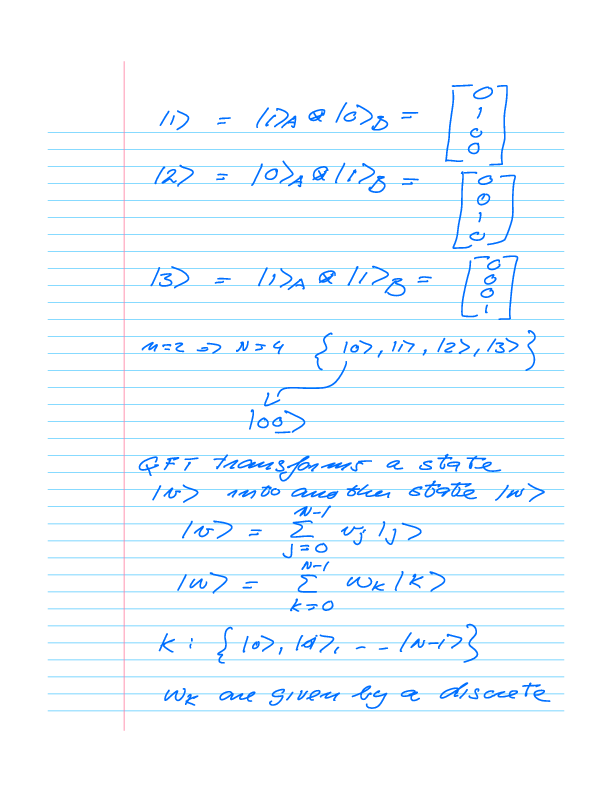 |1> = |1>_A ⊗ |0>_B = [0 1 0 0]
|2> = |0>_A ⊗ |1>_B = [0 0 1 0]
|3> = |1>_A ⊗ |1>_B = [0 0 0 1]
n=2 => N=4 { |0>, |1>, |2>, |3> }
|00>
QFT transforms a state
|v> into another state |w>
|v> = Σ_{j=0}^{N-1} v_j |j>
|w> = Σ_{k=0}^{N-1} w_k |k>
k : { |0>, |1>, -- |N-1> }
w_k are given by a discrete